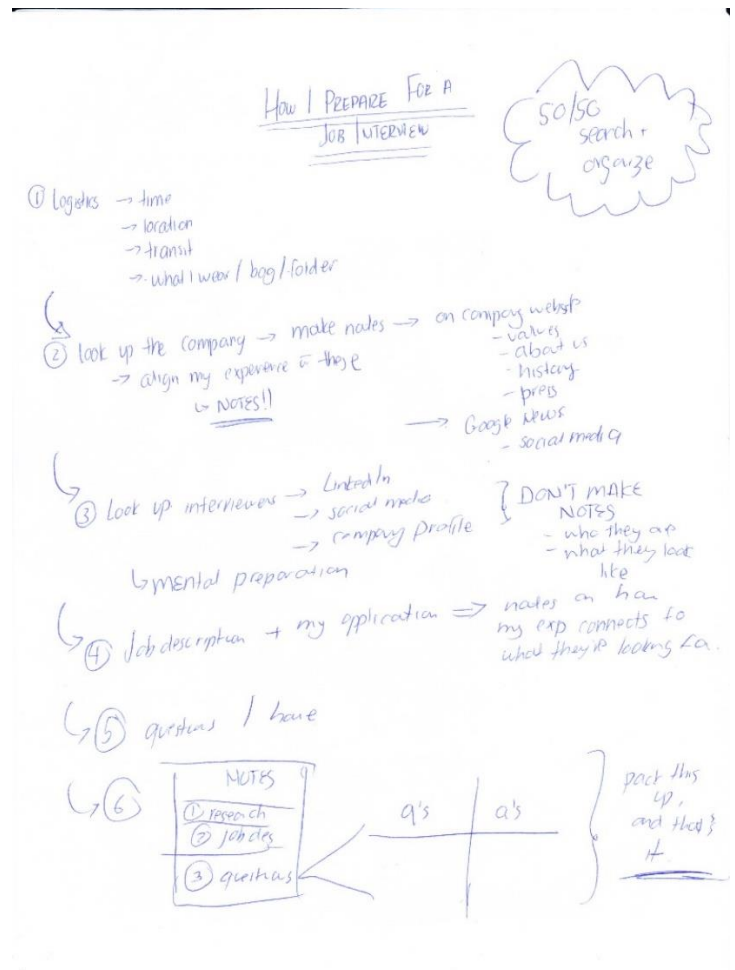 How I PREPARE FOR A
JOB INTERVIEW
50/50
search +
organize
① Logistics → time
→ location
→ transit
→ what I wear / bag / folder
② look up the company → make notes → on company website
- values
- about us
- history
- press
→ align my experience c̄ these
↳ NOTES!!
→ Google News
- social media
③ Look up interviewers → LinkedIn
→ social media
→ company profile
} DON'T MAKE
NOTES
- who they are
- what they look
like
↳ mental preparation
④ Job description + my application ⇒ notes on how
my exp connects to
what they're looking for.
⑤ questions I have
⑥ NOTES
① research
② job des
③ questions
q's
a's
pack this
up,
and that's
it.